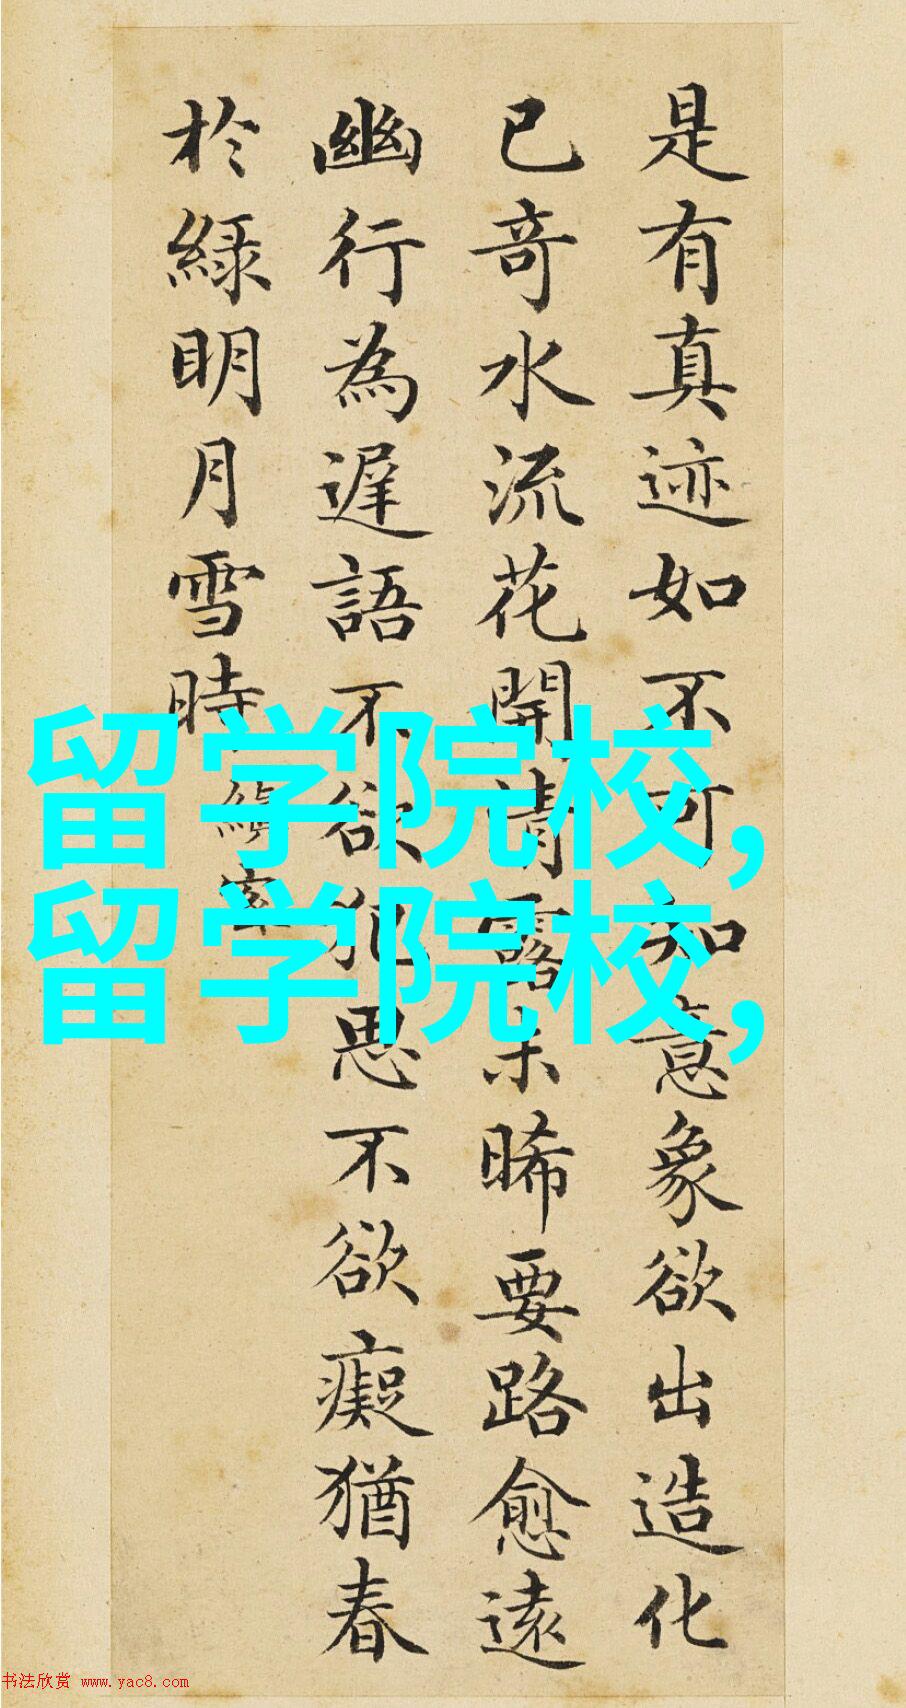 是有真迹如不可知意象欲出造化
已奇水流花開清露未晞要路愈遠
幽行為遲語不欲犯思不欲癡猶春
於綠明月雪時
縝密
留学院校,
留学院校,
书法欣赏 www.yac8.com